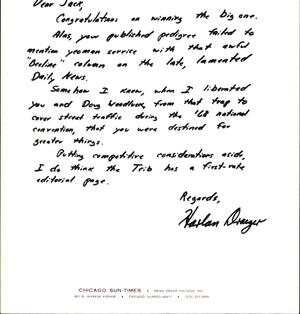 Dear Jack,
Congratulations on winning the big one.
Alas, your published pedigree failed to
mention yeoman service with that awful
"Beeline" column on the late, lamented
Daily News.
Somehow I knew, when I liberated
you and Doug Woodlock from that trap to
cover street traffic during the '68 national
convention, that you were destined for
greater things.
Putting competitive considerations aside,
I do think the Trib has a first-rate
editorial page.
Regards,
Harlan Draeger
CHICAGO SUN-TIMES • NEWS GROUP CHICAGO, INC.
401 N. WABASH AVENUE • CHICAGO, ILLINOIS 60611 •